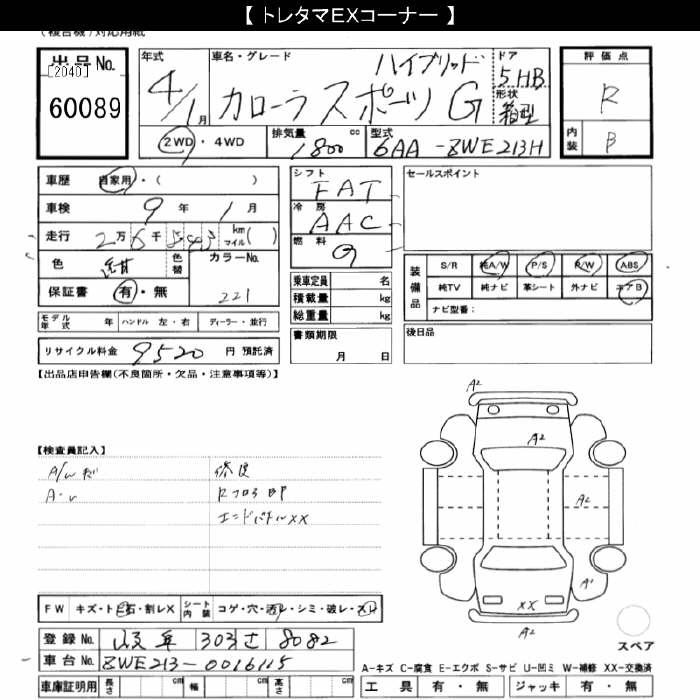 【 トレタマEXコーナー 】
(複合機)対応用紙
出品No.
[2040]
60089
年式
4/1月
車名・グレード
ハイブリッド
カローラスポーツ G
ドア
5HB
形状
箱型
2WD ・ 4WD
排気量
1800 cc
型式
6AA-ZWE213H
評価点
R
内装
B
車歴 自家用・( )
車検 9 年 1 月
走行 2万6千543 km マイル( )
色 紺 色替 カラーNo.
保証書 有・無 221
モデル年式 年 ハンドル 左・右 ディーラー・並行
リサイクル料金 9520 円 預託済
シフト
FAT
冷房
AAC
燃料
G
乗車定員 名
積載量 kg
総重量 kg
書類期限
月 日
セールスポイント
装備品
S/R 純A/W P/S P/W ABS
純TV 純ナビ 革シート 外ナビ エアB
ナビ型番:
後日品
【出品店申告欄(不良箇所・欠品・注意事項等)】
【検査員記入】
A/Wキズ
修復
Rフロア
エンドパネルXX
A2
A2
A2
A1
XX
A2
スペア
FW キズ・ト石・割レX シート内装 コゲ・穴・汚レ・シミ・破レ・スレ
登録No. 岐阜 303 さ 8082
車台No. ZWE213-0016115
車庫証明用 長さ cm 幅 cm 高さ cm
A-キズ C-腐食 E-エクボ S-サビ U-凹ミ W-補修 XX-交換済
工具 有・無 ジャッキ 有・無